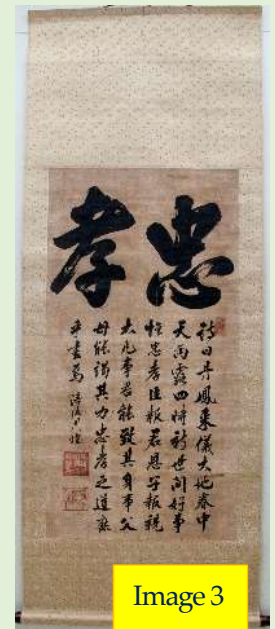 忠孝
詩曰丹鳳來儀大地春中
天雨露四時新世间好事
惟忠孝臣報君恩子報親
凡事君能致其身事父
母能竭其力忠孝之道
書為
Image 3